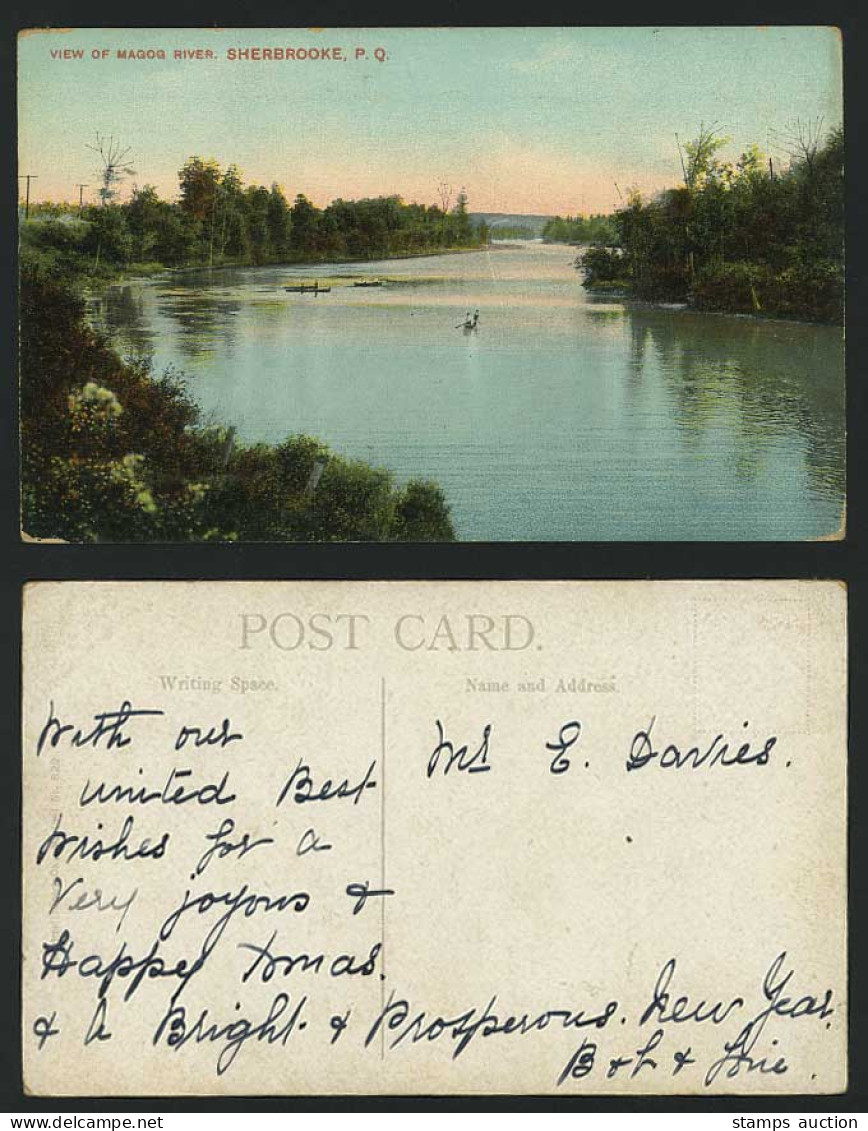 VIEW OF MAGOG RIVER. SHERBROOKE, P. Q.
POST CARD.
Writing Space.
Name and Address.
With our
united Best
Wishes for a
Very joyous &
Happy Xmas.
& A Bright & Prosperous. New Year.
B & L &
Mrs E. Davies.
stamps auction